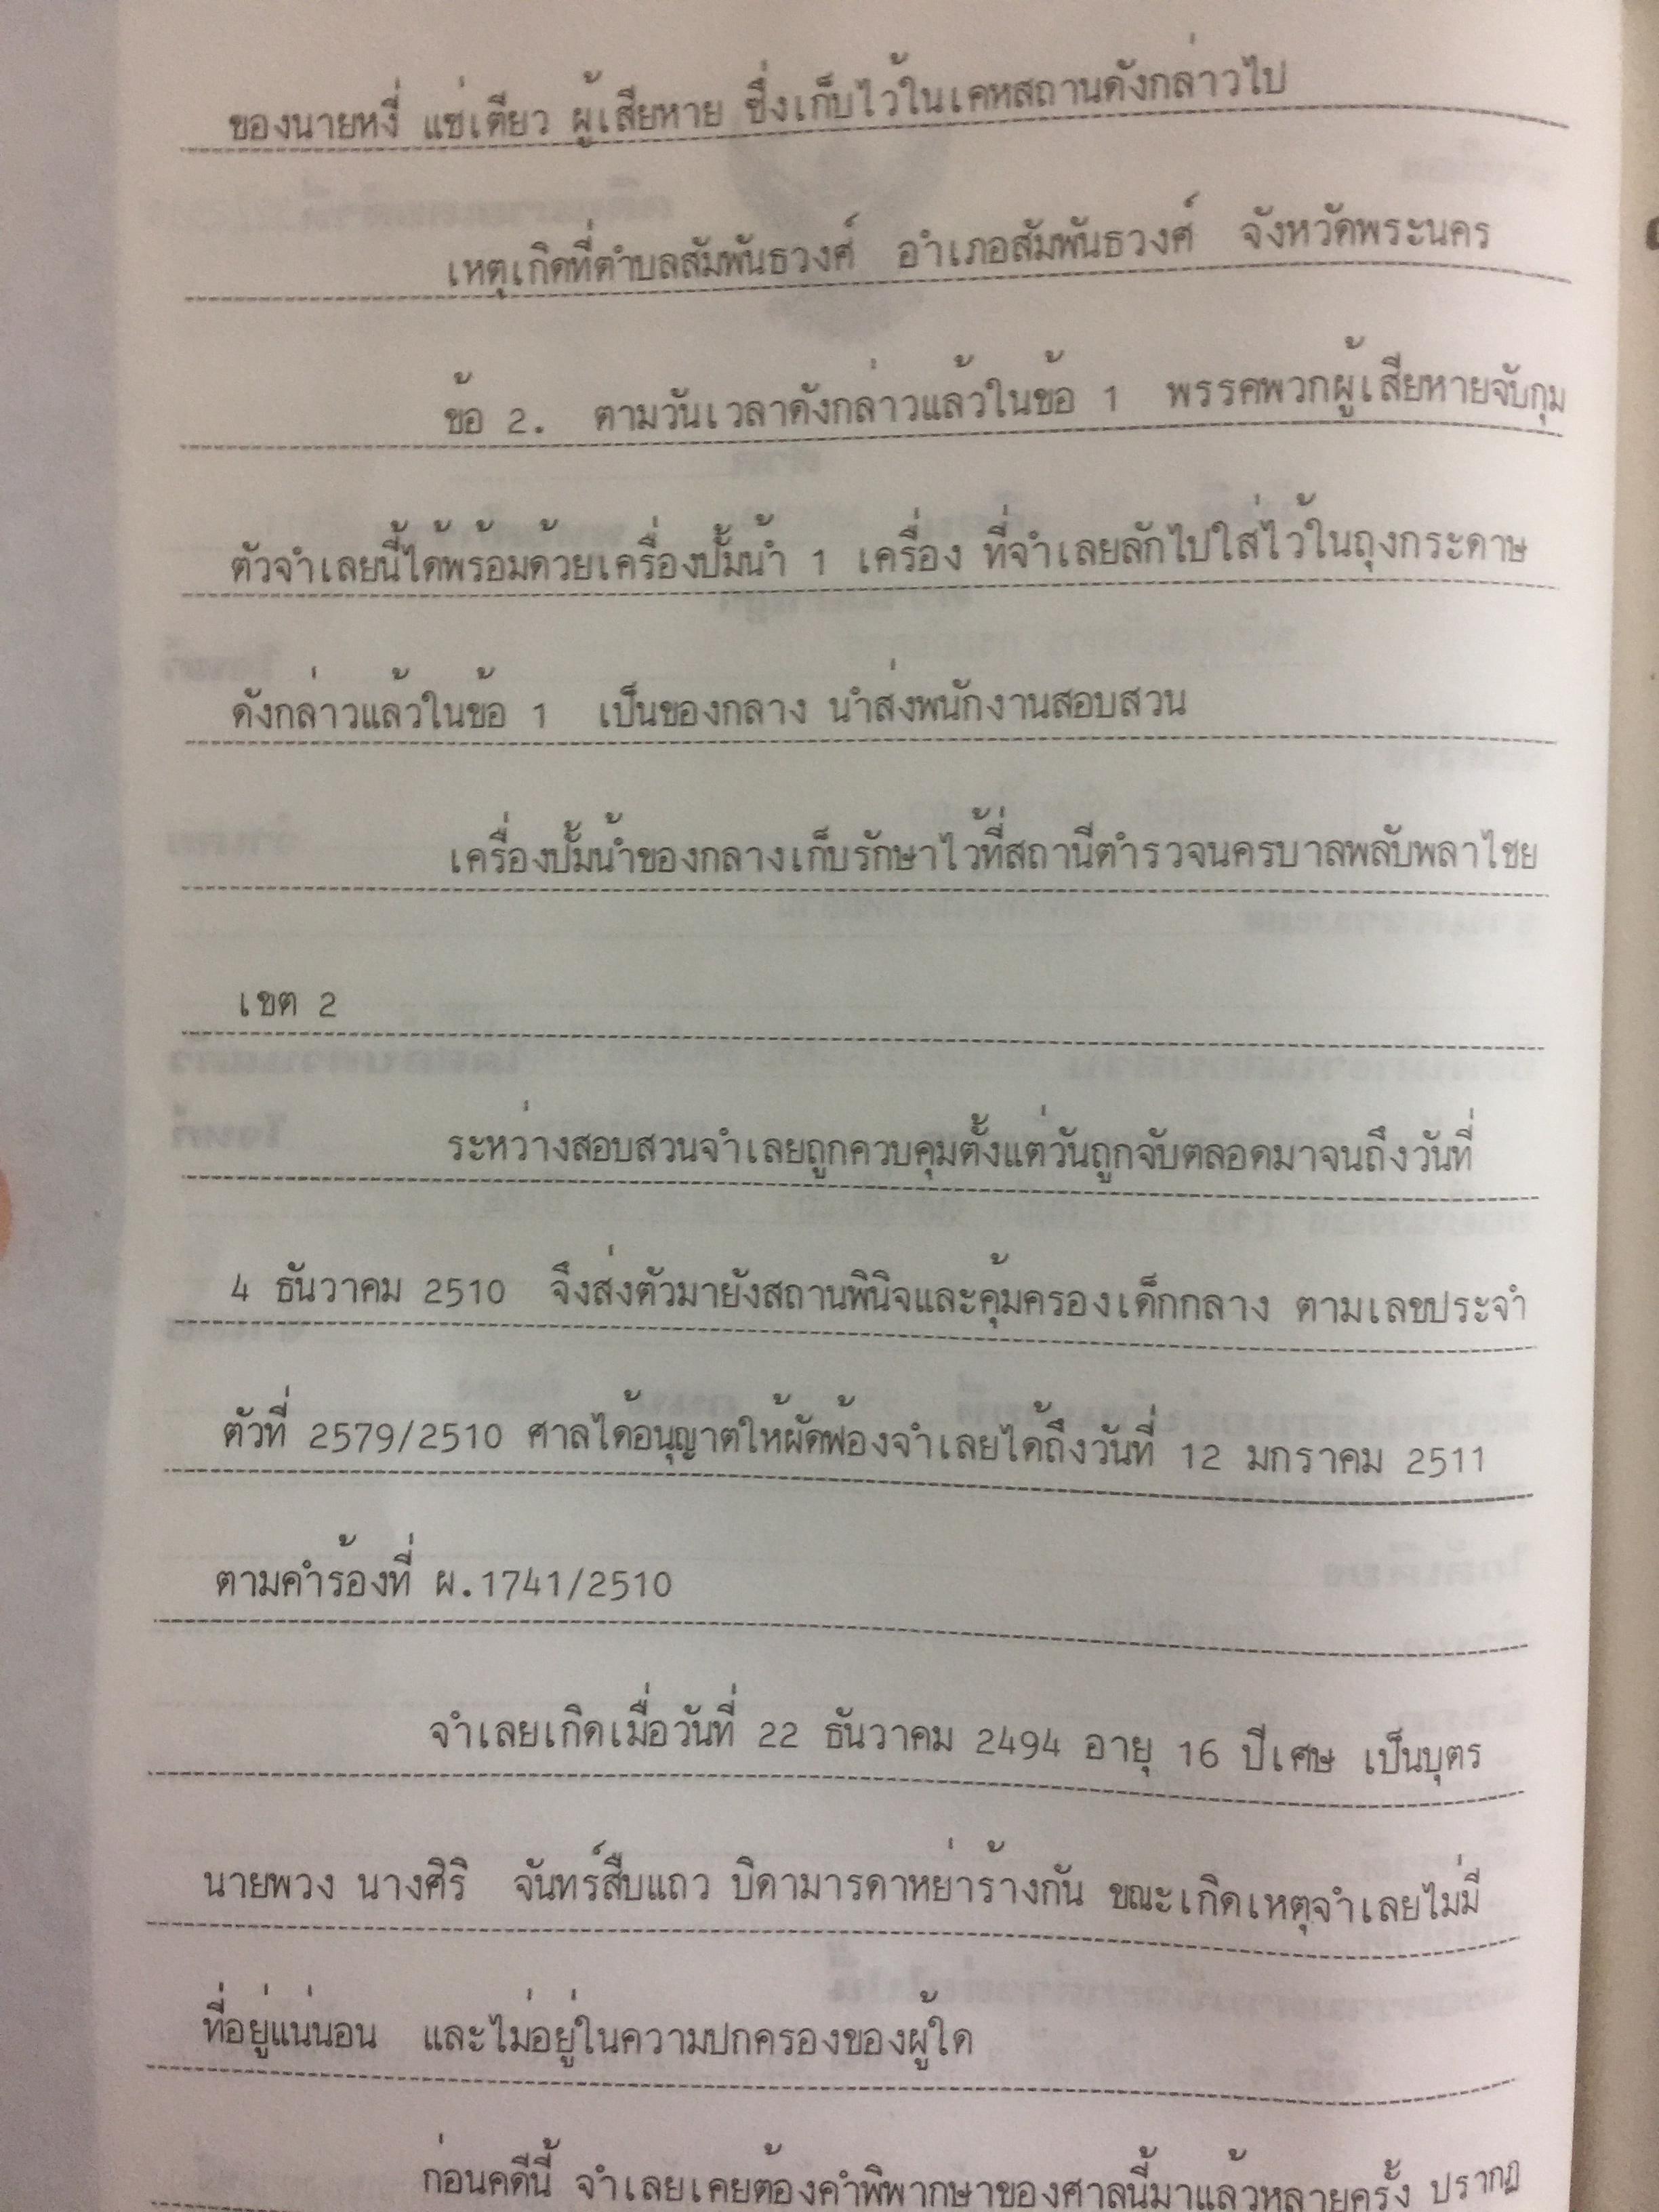 ของนายหงี่ แซ่เตียว ผู้เสียหาย ซึ่งเก็บไว้ในเคหสถานดังกล่าวไป
เหตุเกิดที่ตำบลสัมพันธวงศ์ อำเภอสัมพันธวงศ์ จังหวัดพระนคร
ข้อ 2. ตามวันเวลาดังกล่าวแล้วในข้อ 1 พรรคพวกผู้เสียหายจับกุม
ตัวจำเลยนี้ได้พร้อมด้วยเครื่องปั้มน้ำ 1 เครื่อง ที่จำเลยลักไปใส่ไว้ในถุงกระดาษ
ดังกล่าวแล้วในข้อ 1 เป็นของกลาง นำส่งพนักงานสอบสวน
เครื่องปั้มน้ำของกลางเก็บรักษาไว้ที่สถานีตำรวจนครบาลพลับพลาไชย
เขต 2
ระหว่างสอบสวนจำเลยถูกควบคุมตั้งแต่วันถูกจับตลอดมาจนถึงวันที่
4 ธันวาคม 2510 จึงส่งตัวมายังสถานพินิจและคุ้มครองเด็กกลาง ตามเลขประจำ
ตัวที่ 2579/2510 ศาลได้อนุญาตให้ผัดฟ้องจำเลยได้ถึงวันที่ 12 มกราคม 2511
ตามคำร้องที่ ผ.1741/2510
จำเลยเกิดเมื่อวันที่ 22 ธันวาคม 2494 อายุ 16 ปีเศษ เป็นบุตร
นายพวง นางศิริ จันทร์สืบแถว บิดามารดาหย่าร้างกัน ขณะเกิดเหตุจำเลยไม่มี
ที่อยู่แน่นอน และไม่อยู่ในความปกครองของผู้ใด
ก่อนคดีนี้ จำเลยเคยต้องคำพิพากษาของศาลนี้มาแล้วหลายครั้ง ปรากฏ